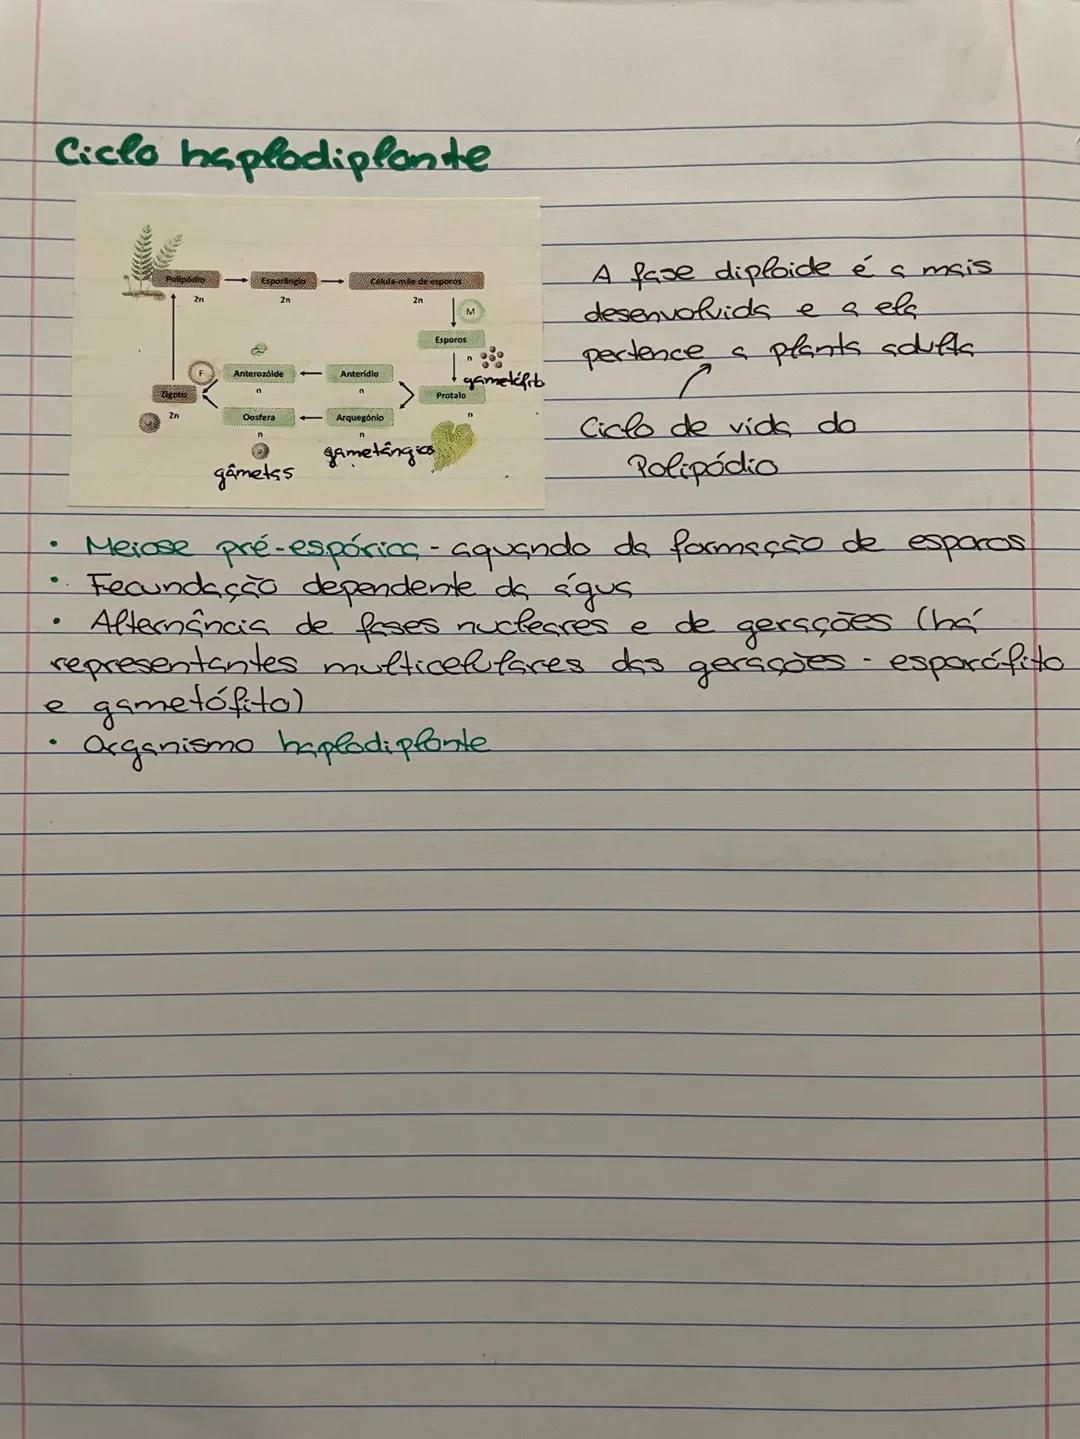 Ciclo haplodiplonte
Polipódio
Esporângio
Célula-mãe de esporos
2n
2n
2n
M
Esporos
n
gametófito
Protalo
n
F
Anterozóide
Anterídio
n
n
Zigoto
2n
Oosfera
Arquegónio
n
n
gâmetas
gametângios
A fase diploide é a mais
desenvolvida e a ela
pertence a planta adulta
Ciclo de vida do
Polipódio
• Meiose pré-espórica - aquando da formação de esporos
• Fecundação dependente da água
• Alternância de fases nucleares e de gerações (há
representantes multicelulares das gerações - esporófito
e gametófito)
• Organismo haplodiplonte